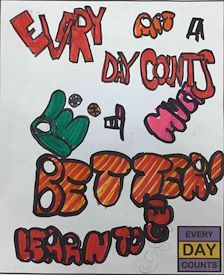 EVERY A
DAY COUNTS
BETTER!
LEARN TO
EVERY
DAY
COUNTS